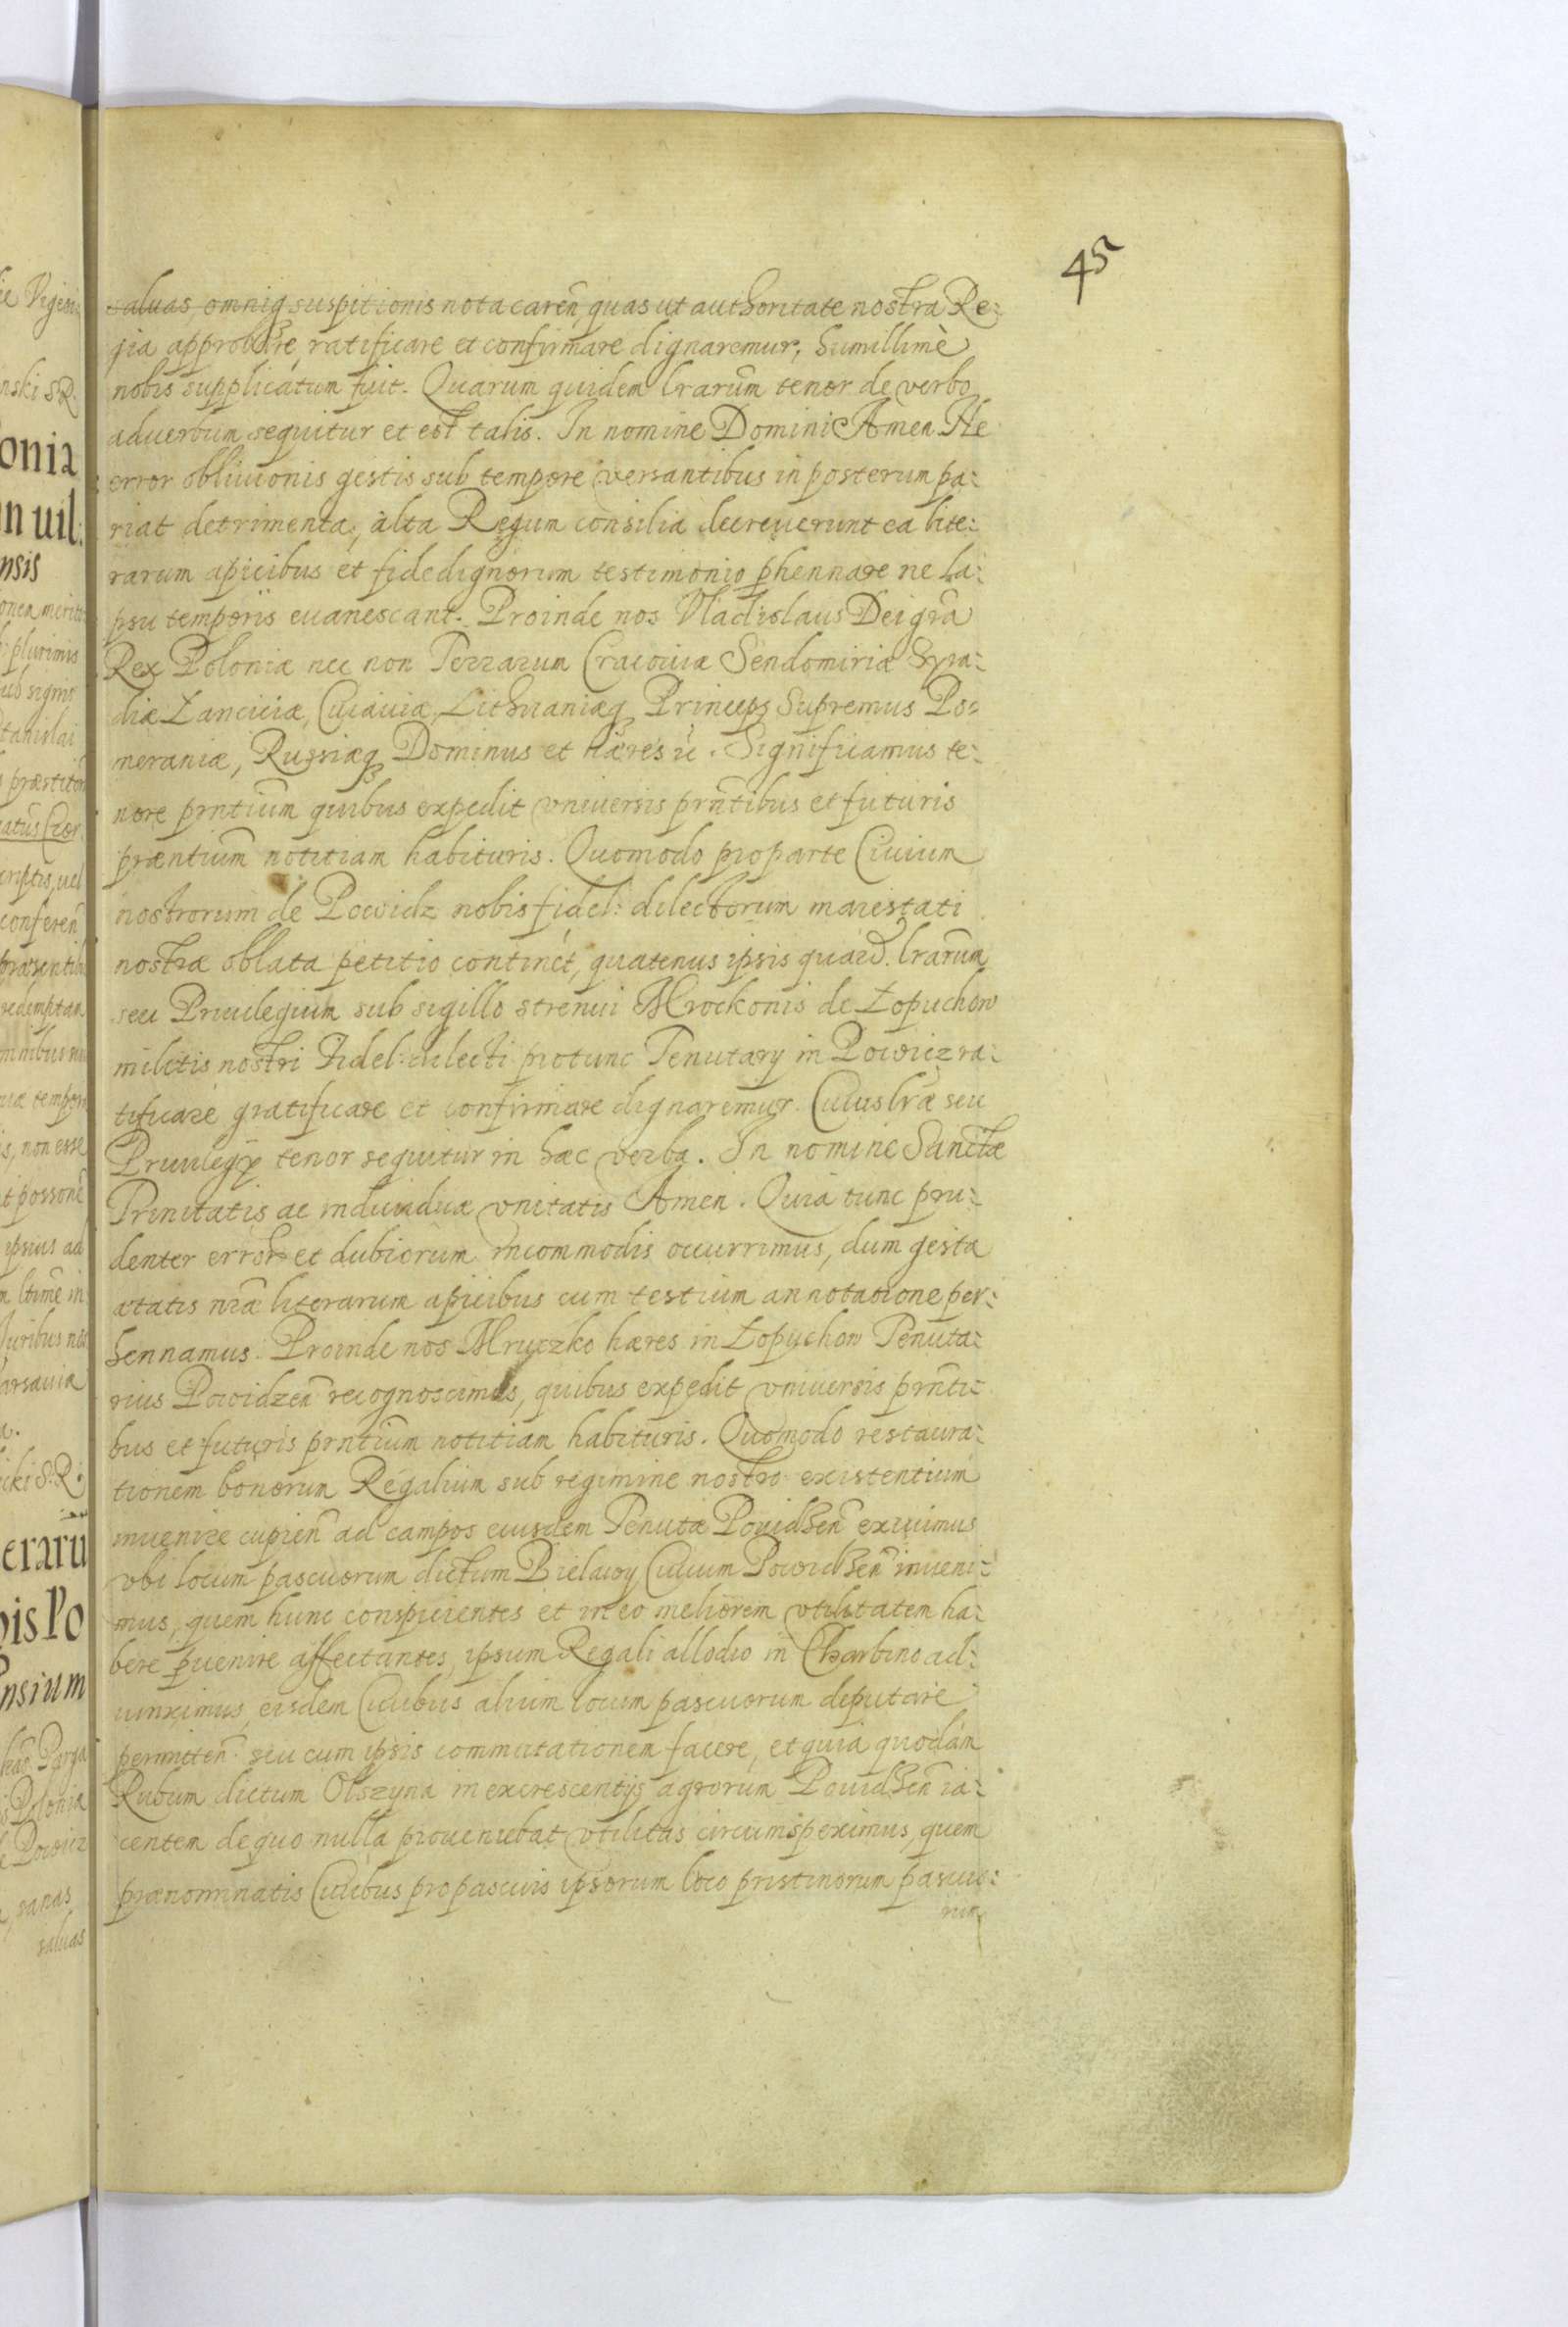 45
saluas, omniq₃ suspitionis nota careñ, quas ut authoritate nostra Re:
gia approbare, ratificare et confirmare dignaremur, humillimè
nobis supplicatum fuit. Quarum quidem lrarum̃ tenor de verbo
aduerbum sequitur et est talis. In nomine Domini Amen. Ne
error obliuionis gestis sub tempore versantibus in posterum pa:
riat detrimenta, alta Regum consilia decreuerunt ea lite:
rarum apicibus et fidedignorum testimonio phennare ne la:
psu temporis euanescant. Proinde nos Vladislaus Dei gr̃a
Rex Poloniæ nec non Terrarum Cracoviæ Sendomiriæ Syra:
diæ Łanciciæ, Cuiauiæ, Lithuaniæq₃ Princeps Supremus Po:
meraniæ, Russiæq₃ Dominus et hæres ẽ. Significamus te:
nore prntium̃ quibus expedit vniuersis prñtibus et futuris
præntium̃ notitiam habituris. Quomodo pro parte Ciuium
nostrorum de Powidz nobis fidel: dilectorum maiestati
nostræ oblata petitio continet, quatenus ipsis quasd. lrarum̃
seu Priuilegium sub sigillo strenui Mrockonis de Łopuchow
militis nostri Fidel: dilecti protunc Tenutarÿ in Powicz ra:
tificare gratificare et confirmare dignaremur. Cuius lr̃æ seu
Priuilegÿ tenor sequitur in hæc verba. In nomine Sanctæ
Trinitatis ac indiuiduæ vnitatis Amen. Quia tunc pru:
denter error et dubiorum incommodis occurrimus, dum gesta
ætatis nr̃æ literarum apicibus cum testium annotatione per:
hennamus. Proinde nos Mruczko hæres in Łopuchow Tenuta:
rius Powidzeñ recognoscimus, quibus expedit vniuersis prñti:
bus et futuris prntium̃ notitiam habituris. Quomodo restaura:
tionem bonorum Regalium sub regimine nostro existentium
inuenire cupieñ ad campos eiusdem Tenutæ Pouidzeñ exiuimus
vbi locum pascuorum dictum Bielawy Ciuium Powidzeñ inueni:
mus, quem hunc conspicientes et in eo meliorem vtilitatem ha:
bere puenire affectantes, ipsum Regali allodio in Charbino ad:
iunximus, eisdem Ciuibus alium locum pascuorum deputare
permitteñ. seu cum ipsis commutationem facere, et quia quodam
Rubum dictum Olszyna in excrescentijs agrorum Pouidzeñ ia:
centem de quo nulla proueniebat vtilitas circumspeximus, quem
prænominatis Ciuibus pro pascuis ipsorum loco pristinorum pascuo:
rum